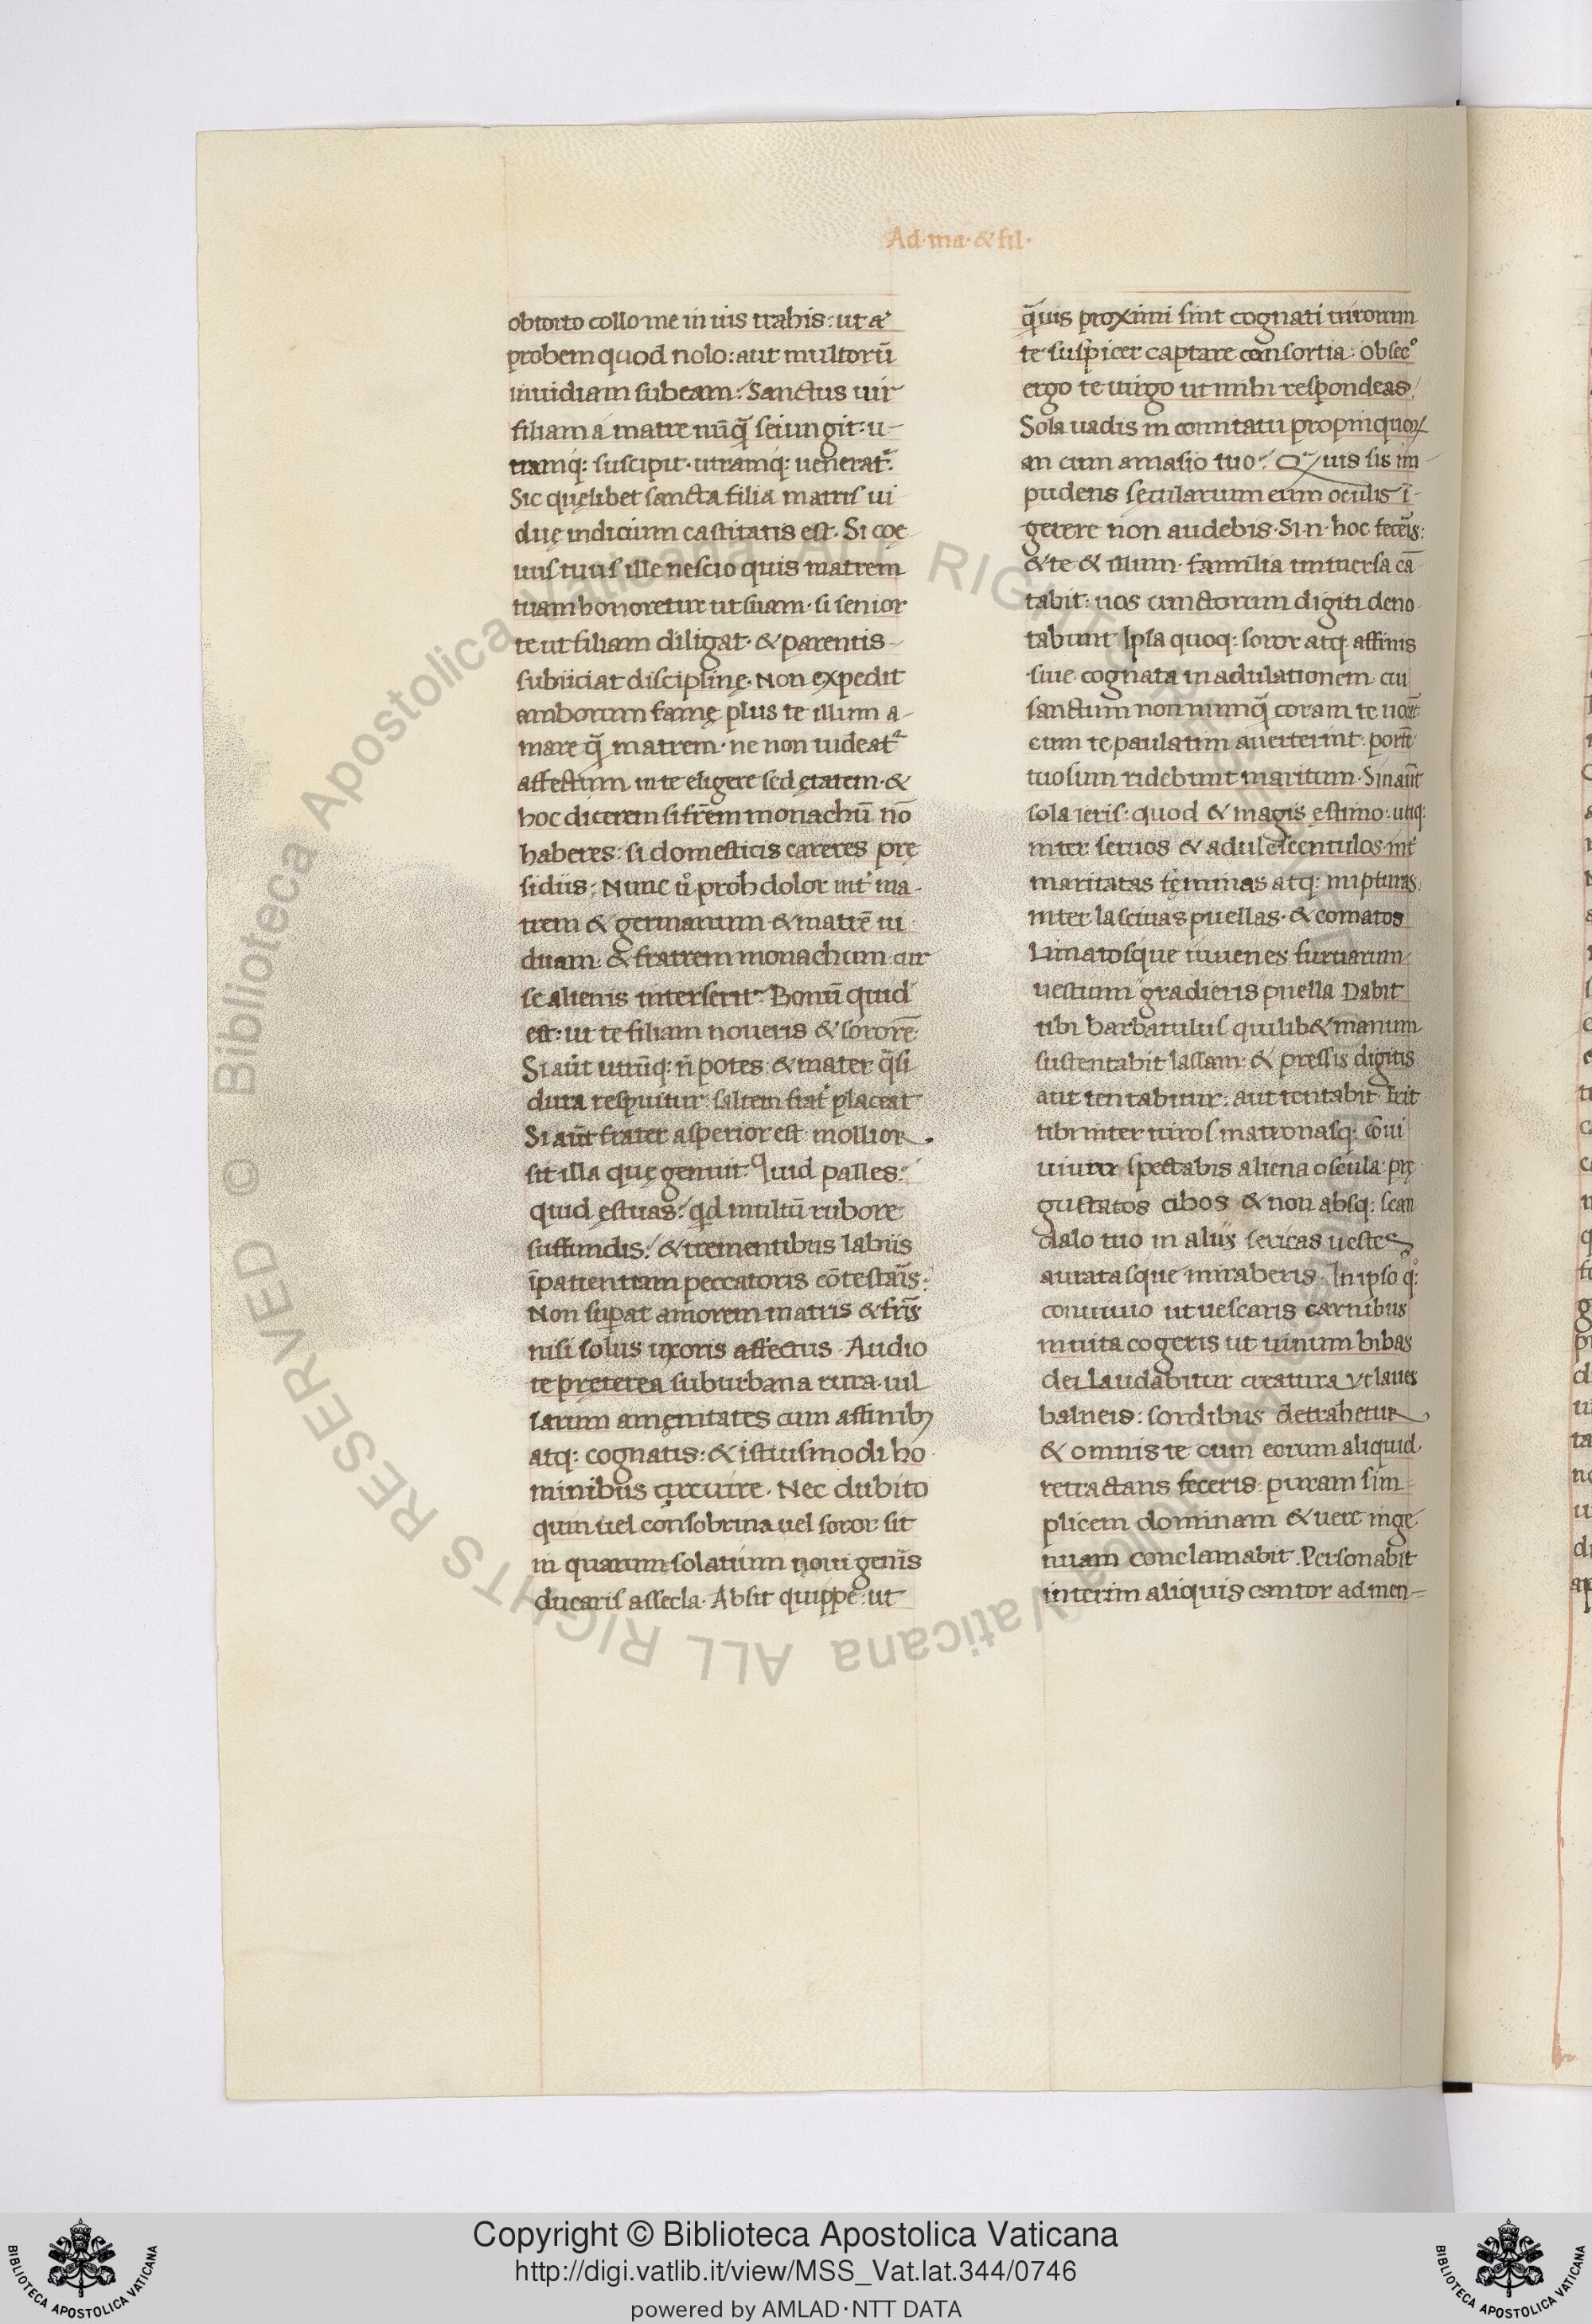 Ad·ma·&fil·
obtorto collo me in uis trahis: ut a
probem quod nolo: aut multorū
inuidiam subeam? Sanctus uir
filiam a matre nūq̄ seiungit: u-
tramq; suscipit· utramq; ueneratᷓ
Sic quęlibet sancta filia matris ui
duę indicium castitatis est. Si coę
uus tuus ille nescio quis matrem
tuam honoretur ut suam· si senior
te ut filiam diligat· & parentis
subiiciat disciplinę. Non expedit
amborum famę plus te illum a-
mare q̄ matrem· ne non uideatᷓ
affectum in te eligere sed ętatem· &
hoc dicerem si fr̄em monachū nō
haberes: si domesticis careres pre
sidiis: Nunc u̇ proh dolor int̓ ma-
trem & germanum· & matrē ui
duam· & fratrem monachum cur
se alienis interserit? Bonū quid
est: ut te filiam noueris & sororē·
Si aūt utrūq; ñ potes· & mater q̄si
dura respuitur: saltem frat̓ placeat
Si aūt frater asperior est: mollior·
sit illa quę genuit. Quid palles?
quid ęstuas? qd multū rubore
suffundis? & trementibus labiis
īpatientiam peccatoris cōtestāis?
Non supat amorem matris & fr̄is
nisi solus uxoris affectus. Audio
te preterea suburbana rura· uil
larum amęnitates cum affinibꝫ
atq; cognatis: & istiusmodi ho
minibus circuire. Nec dubito
quin uel consobrina uel soror sit
in quarum solatium noui gen̄is
ducaris assecla. Absit quippe: ut
q̄uis proximi sint cognati uirorum
te suspicer captare consortia: Obsecº
ergo te uirgo ut mihi respondeas/
Sola uadis in comitatu propinquoꝝ
an cum amasio tuo? Quis sis im
pudens secularium eum oculis ī-
gerere non audebis. Si n· hoc fecēis:
& te & illum· familia uniuersa cā
tabit: uos cunctorum digiti deno
tabunt Ipsa quoq; soror atq; affinis
siue cognata in adulationem cui
sanctum non nunq̄ coram te uocāt
cum te paulatim auerterint·
tuosum ridebunt maritum. Sin aūt
sola ieris: quod & magis ęstimo: utiq;
inter seruos & adulescentulos· int̓
maritatas feminas atq; nupturas·
inter lasciuas puellas· & comatos
Limatosque iuuenes furuarum
uestium gradieris puella Dabit
tibi barbatulus quilib& manum
sustentabit lassam: & pressis digitis
aut tentabitur: aut tentabit Erit
tibi inter uiros matronasq; cōui
uium spectabis aliena oscula: prę
gustatos cibos & non absq; scan
dalo tuo in aliis sericas uestes
auratasque miraberis. In ipso qº;
conuiuio ut uescaris carnibus
inuita cogeris ut uinum bibas
dei Laudabitur creatura ut laues
balneis: sordibus detrahetur
& omnis te cum eorum aliquid
retractans feceris· puram sim=
plicem dominam & uere inge
nuam conclamabit. Personabit
interim aliquis cantor ad men=
Copyright © Biblioteca Apostolica Vaticana
http://digi.vatlib.it/view/MSS_Vat.lat.344/0746
powered by AMLAD·NTT DATA
BIBLIOTECA APOSTOLICA VATICANA
BIBLIOTECA APOSTOLICA VATICANA
© Biblioteca Apostolica Vaticana ALL RIGHTS RESERVED
© Biblioteca Apostolica Vaticana ALL RIGHTS RESERVED